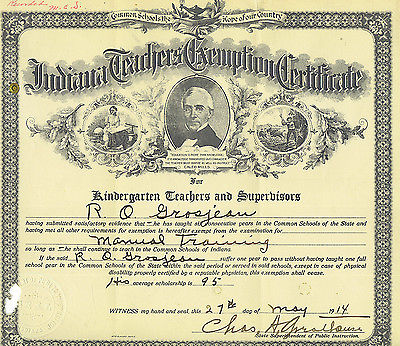 Recorded M.C.S.
Common Schools the Hope of our Country
Indiana Teachers Exemption Certificate
CALEB MILLS
For
Kindergarten Teachers and Supervisors
R. O. Grosjean
having submitted satisfactory evidence that he has taught six consecutive years in the Common Schools of the State and
having met all other requirements for exemption is hereby exempt from the examination for
Manual Training
so long as he shall continue to teach in the Common Schools of Indiana.
If the said R. O. Grosjean suffer one year to pass without having taught one full
school year in the Common Schools of the State within the said period or served in said schools, except in case of physical
disability properly certified by a reputable physician, this exemption shall cease.
His average scholarship is 95
WITNESS my hand and seal this 27th day of May 1914
Chas. A. Greathouse
State Superintendent of Public Instruction.